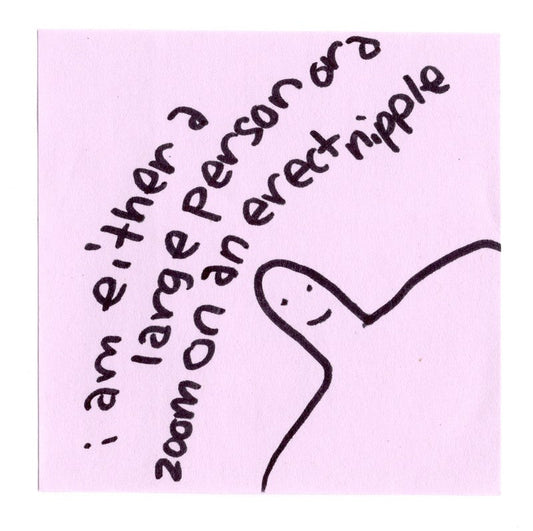 i am either a
large person or a
zoom on an erect nipple